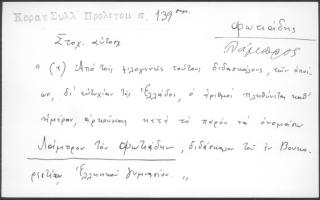 Κορατ Συλλ Προλεγομ σ. 139 σημ.
Φωτιάδης
Λάμπρος
Στοχ. αὐτοσχ
"(1) Ἀπὸ τοὺς φιλογενεῖς τούτους διδασκάλους, τῶν ὁποί-
ων, δι' εὐτυχίαν τῆς Ἑλλάδος, ὁ ἀριθμὸς πληθύνεται καθ'
ἡμέραν, ἀρκοῦμαι κατὰ τὸ παρὸν νὰ ὀνομάσω
Λάμπρον τὸν Φωτιάδην, διδάσκαλον τοῦ ἐν Βουκου-
ρεστίῳ Ἑλληνικοῦ γυμνασίου. "